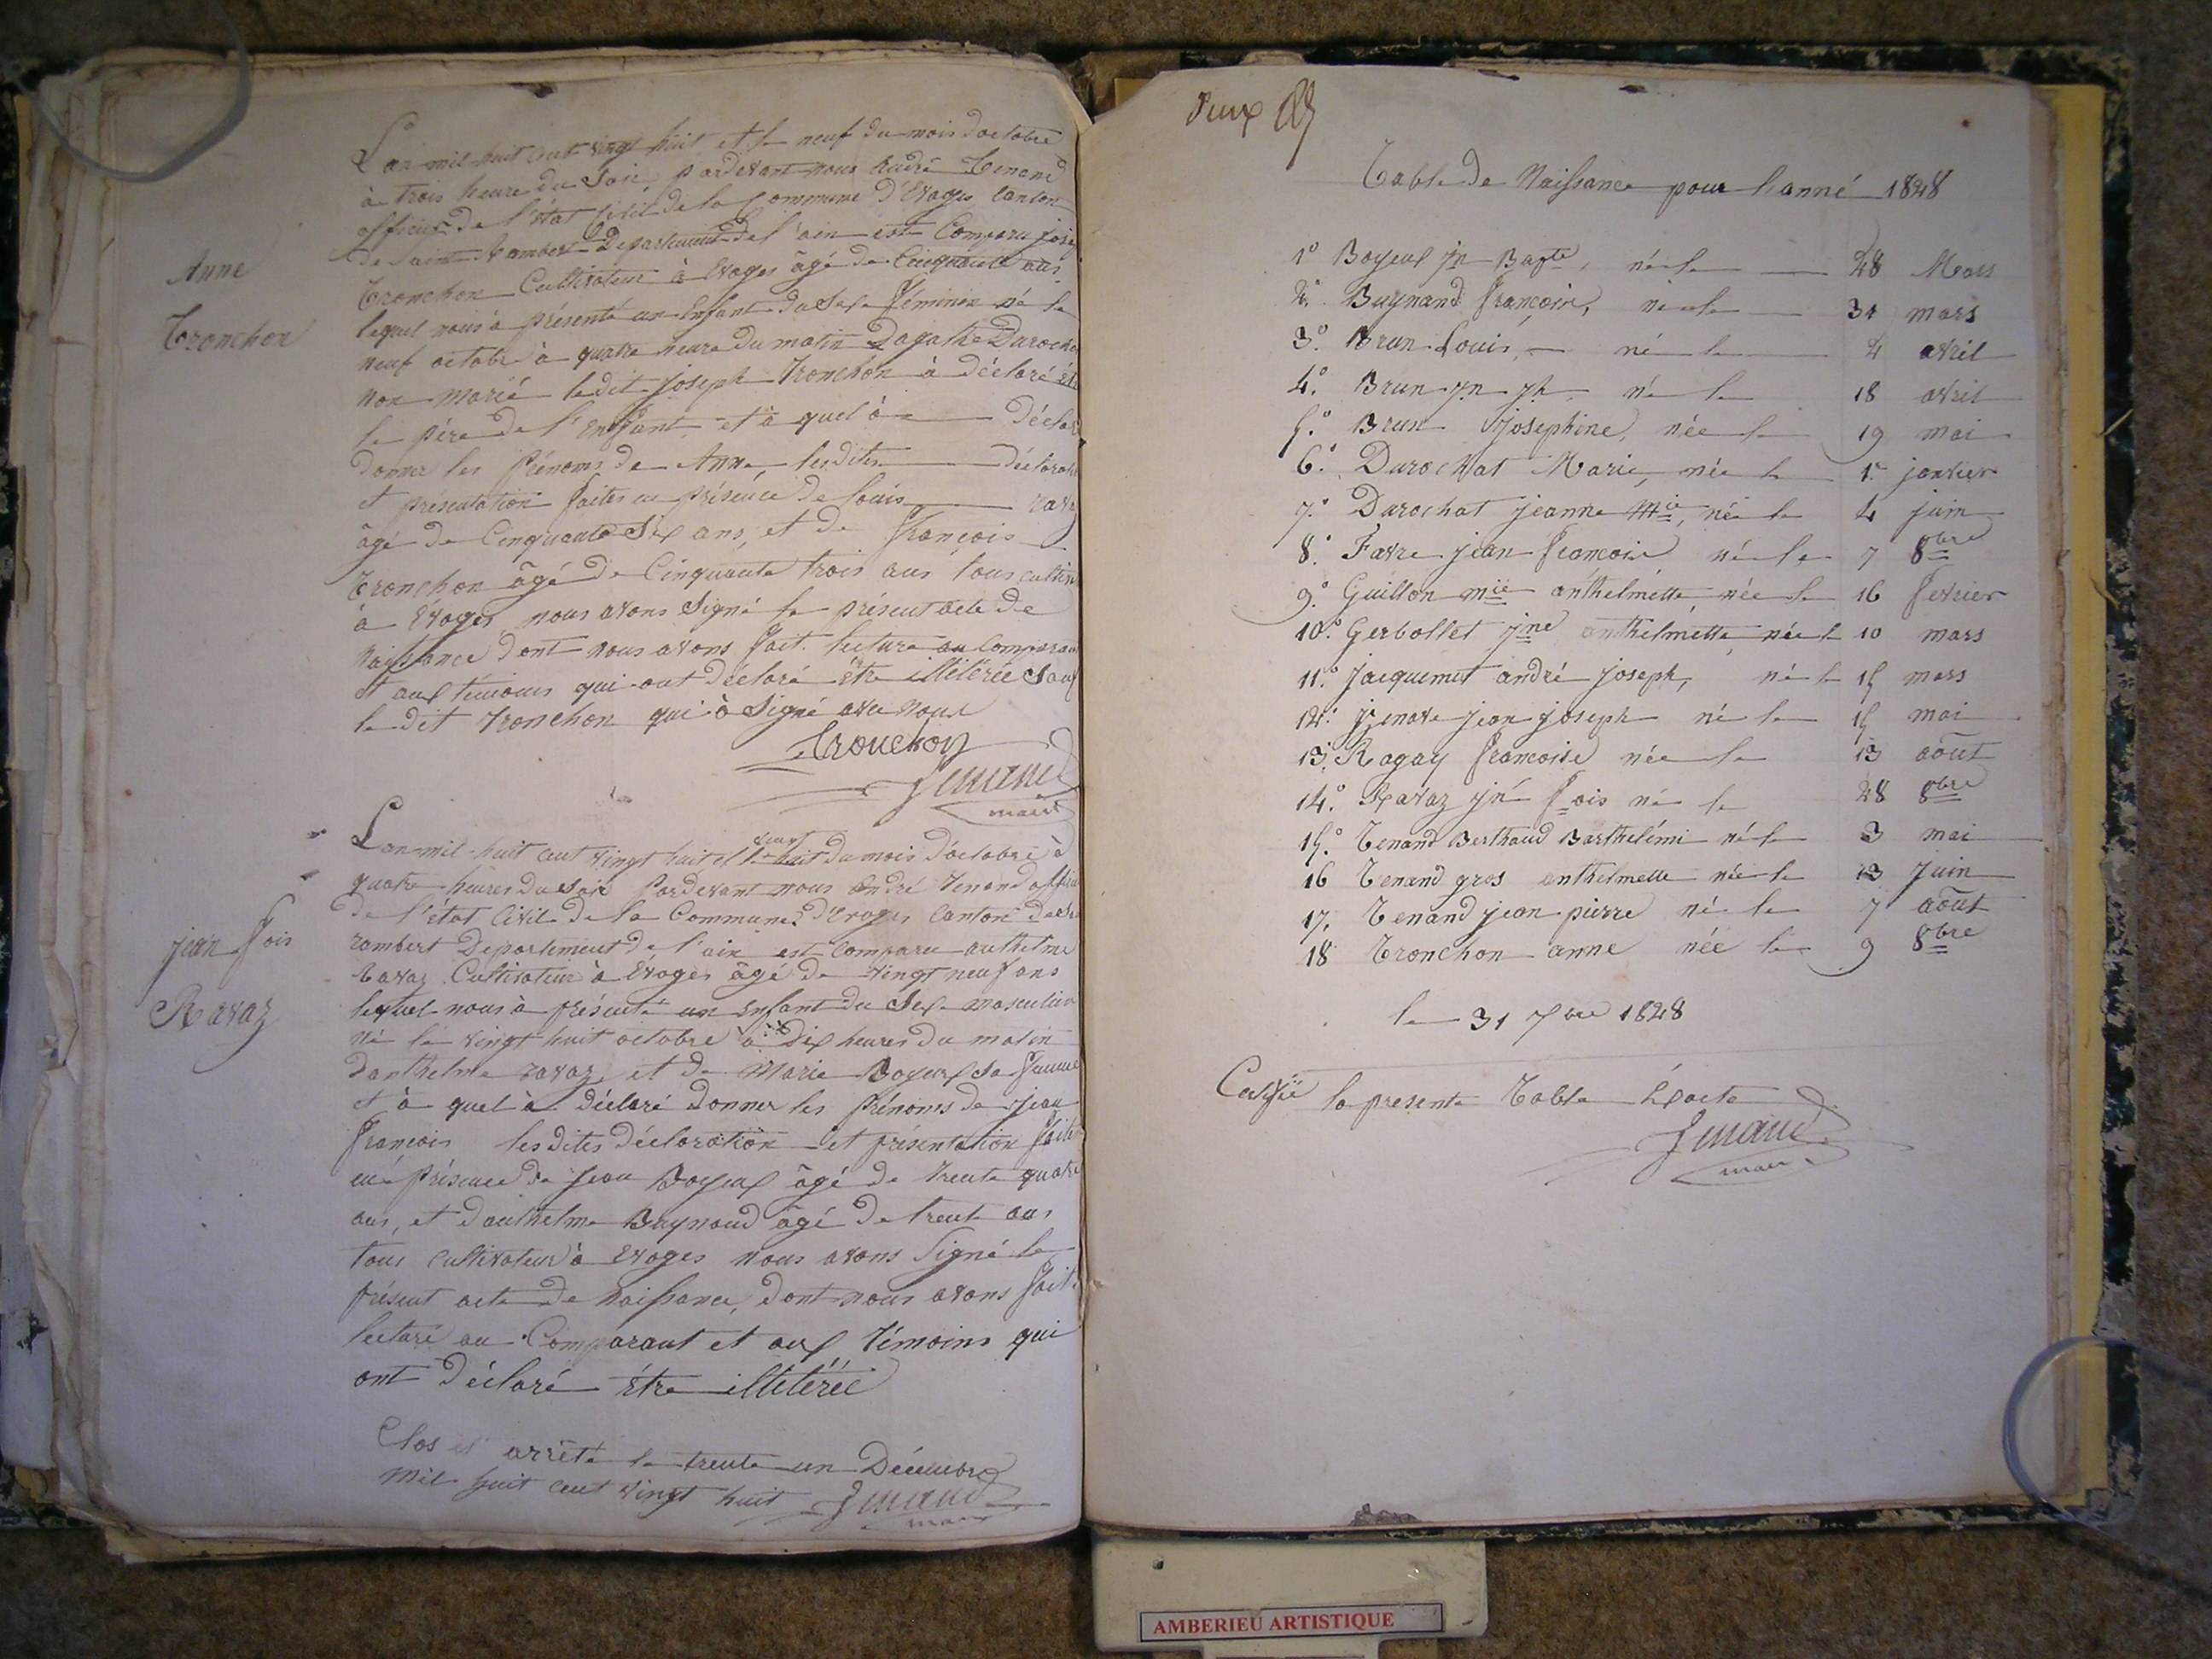 Anne
Tronchon
L'an mil huit cent vingt huit et le neuf du mois doctobre
à trois heure du Soir pardevant nous André Tenand
officier de l'état Civil de la Commune d'Evoges canton
de Saint Rambert Département de l'ain est Comparu Josep
Tronchon Cultivateur à Evoges âgé de Cinquante ans
lequel nous à présenté un Enfant du Sexe féminin né le
neuf octobre à quatre heure du matin Dagathe Durocha
non marié le dit Joseph Tronchon à déclaré êtr
le père de l'Enfant et à quel à déclar
donner les Prénoms de Anne, les dites déclarati
et présentation faites en présence de Louis ravaz
âgé de Cinquante Six ans, et de François
Tronchon âgé de Cinquante trois ans tous cultiv
à Evoges nous avons Signé le présent acte de
naissance dont nous avons fait lecture au comparant
et aux témoins qui ont déclaré être illitérée Sauf
le dit Tronchon qui à Signé avec nous
Tronchon
Tenand
maire
jean fois
Ravaz
Lan mil huit cent vingt huit et le vingt huit du mois d'octobre à
quatre heures du Soir Pardevant nous André Tenand offici
de l'état Civil de la Commune d'Evoges Canton de St
rambert Département de l'ain est comparu anthelme
Ravaz Cultivateur à Evoges âgé de vingt neuf ans
lequel nous à présenté un Enfant du Sexe masculin
né le vingt huit octobre à Dix heures du matin
Danthelme ravaz, et de Marie Boyeux Sa femme
et à quel à déclaré Donner les Prénoms de jean
François les dites déclaration et présentation faites
en présence de Jean Boyeux âgé de trente quatre
ans, et danthelme Buynand âgé de trente ans
tous cultivateur à Evoges nous avons Signé le
présent acte de naissance, dont nous avons fait
lecture au Comparant et aux témoins qui
ont Déclaré être illitérée
Clos et arrêté le trente un Décembre
mil huit cent vingt huit Tenand
maire
Table de Naissance pour l'anné 1828
1° Boyeux jn Bapte, né le 28 Mars
2° Buynand François, né le 31 mars
3° Brun Louis, né le 4 avril
4° Brun jn jh né le 18 avril
5° Brun Josephine, née le 19 mai
6° Durochat Marie, née le 1er janvier
7° Durochat jeanne Mie, née le 4 juin
8° Favre jean françois né le 7 8bre
9° Guillon mie anthelmette, née le 16 fevrier
10° Gerbollet jne anthelmette, née le 10 mars
11° Jacquemet andré joseph, né le 15 mars
12° Jenave jean joseph né le 15 mai
13. Ragay françoise née le 13 août
14° Ravaz jn fois né le 28 8bre
15° Tenand Berthaud Barthélémi né le 3 mai
16 Tenand gros anthelmette née le 13 Juin
17. Tenand jean pierre né le 7 août
18 Tronchon anne née le 9 8bre
le 31 Xbre 1828
Certifié la presente Table Exacte
Tenand
maire
AMBERIEU ARTISTIQUE